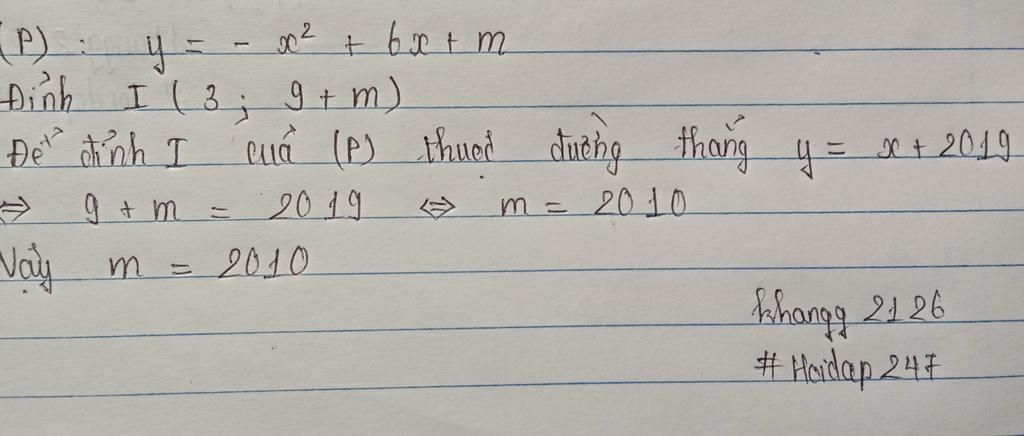 (P) : y = - x² + 6x + m
Đỉnh I ( 3 ; 9 + m )
Để đỉnh I của (P) thuộc đường thẳng y = x + 2019
⇔ 9 + m = 2019 ⇔ m = 2010
Vậy m = 2010
khangg 2126
# Hoidap 247